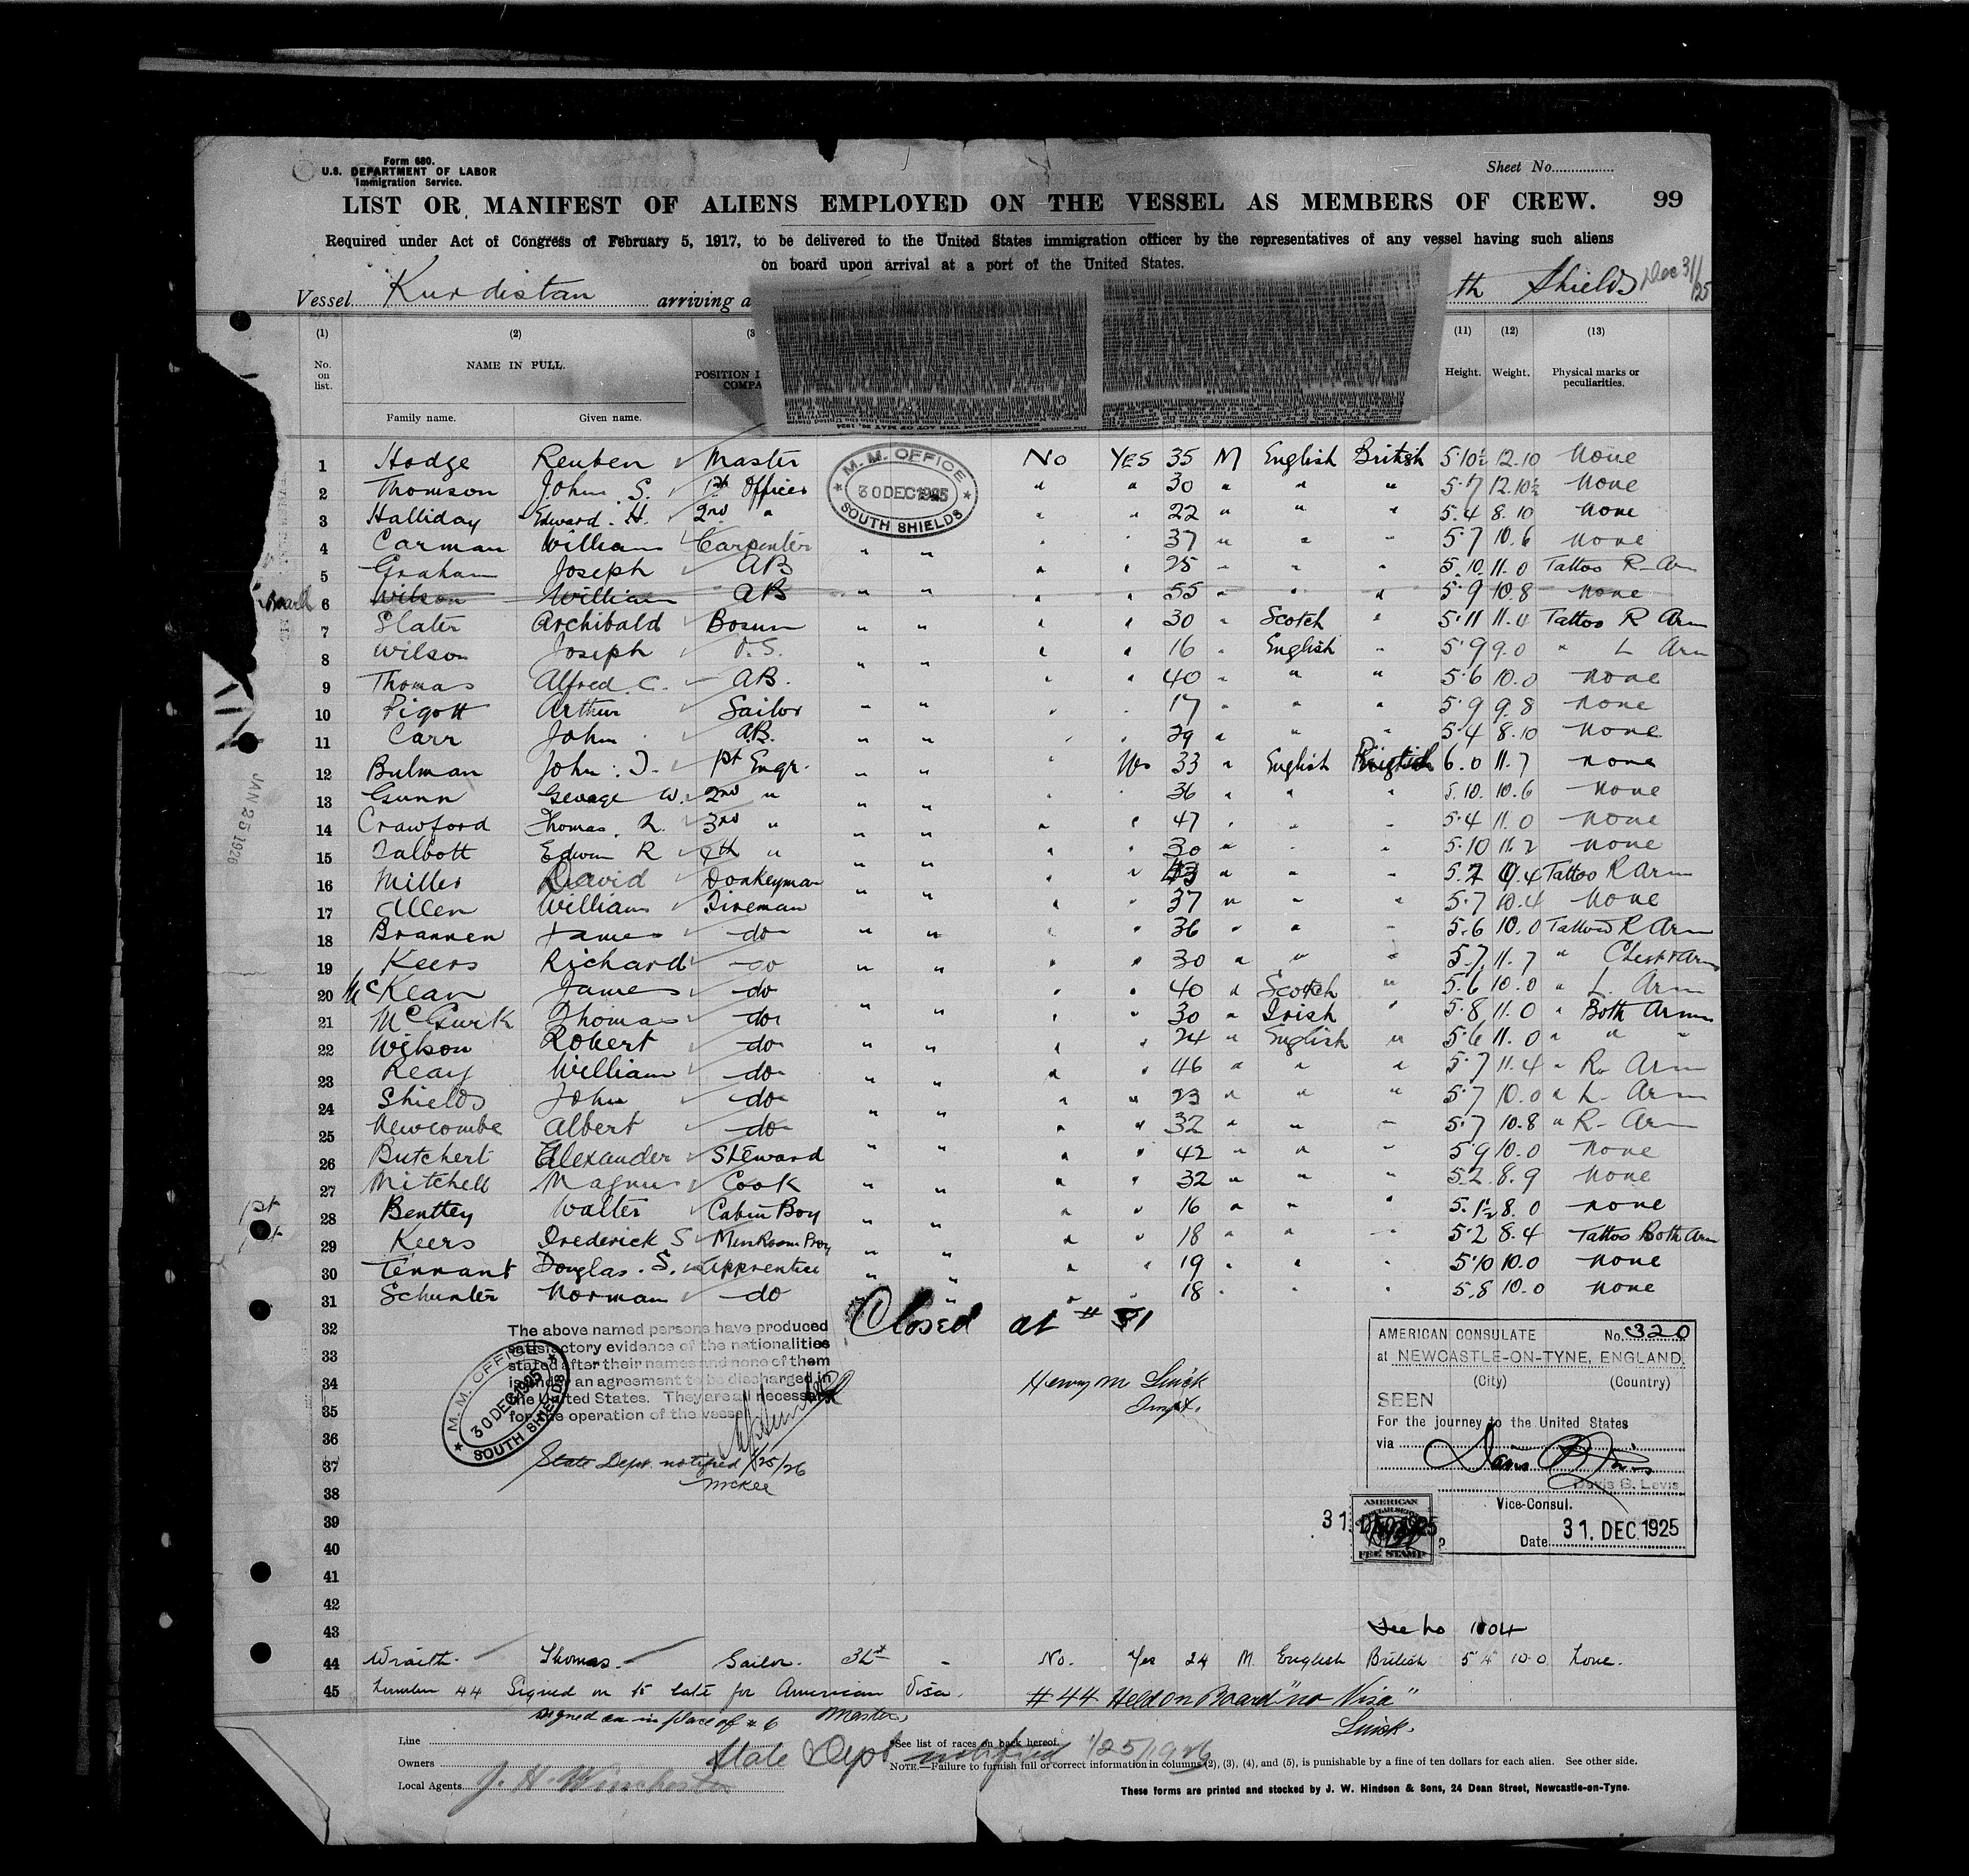 Form 680.
U.S. DEPARTMENT OF LABOR
Immigration Service.
Sheet No.
LIST OR MANIFEST OF ALIENS EMPLOYED ON THE VESSEL AS MEMBERS OF CREW. 99
Required under Act of Congress of February 5, 1917, to be delivered to the United States immigration officer by the representatives of any vessel having such aliens
on board upon arrival at a port of the United States.
Vessel Kurdistan arriving a th Shields Dec 31/25
(1) (2) (3 (11) (12) (13)
No. on list. NAME IN FULL. POSITION I COMPA Height. Weight. Physical marks or peculiarities.
Family name. Given name.
1 Hodge Reuben Master No YES 35 M English British 5·10½ 12.10 None
2 Thomson John S. 1st Officer " " 30 " " " 5·7 12.10½ None
3 Halliday Edward. H. 2nd " " " 22 " " " 5.4 8.10 None
4 Carman William Carpenter " " " " 37 " " " 5·7 10.6 None
5 Graham Joseph AB " " 25 " " " 5.10 11.0 Tattoo R Arm
6 Wilson William AB " " " " 55 " " " 5·9 10.8 None
7 Slater Archibald Bosun " " " " 30 " Scotch " 5·11 11.4 Tattoo R Arm
8 Wilson Joseph O.S. " " " " 16 " English " 5·9 9.0 " L Arm
9 Thomas Alfred. C. AB. " " 40 " " " 5·6 10.0 None
10 Pigott Arthur Sailor " " 17 " " 5·9 9.8 None
11 Carr John AB. " " 29 " " " 5·4 8.10 None
12 Bulman John. T. 1st Engr. " " " Yes 33 " English British 6.0 11.7 None
13 Gunn George W. 2nd " " " 36 " " " 5.10. 10.6 None
14 Crawford Thomas. R. 3rd " " " " " 47 " " " 5·4 11.0 None
15 Talbott Edwin R 4th " " " " " 30 " " " 5.10 11.2 None
16 Miller David Donkeyman " " " " 43 " " " 5.7 9.4 Tattoo R Arm
17 Allen William Fireman " " " " 37 " " " 5·7 10.4 None
18 Brannen James do " " " " 36 " " " 5.6 10.0 Tattooed R Arm
19 Keers Richard do " " " " 30 " " " 5.7. 11.7 " Chest & Arms
20 McKean James do " " 40 " Scotch " 5.6 10.0 " L. Arm
21 McGurk Thomas do " " " " 30 " Irish " 5·8 11.0 " Both Arms
22 Wilson Robert do " " " " 24 " English " 5·6 11.0 " " "
23 Reay William do " " " " 46 " " " 5·7 11.4 " R. Arm
24 Shields John do " " " " 23 " " " 5·7 10.0 " L. Arm
25 Newcombe Albert do " " 32 " " " 5·7 10.8 " R- Arm
26 Butchert Alexander Steward " " " " 42 " " " 5·9 10.0 None
27 Mitchell Magnus Cook " " " " 32 " " " 5.2 8.9 None
28 Benttey Walter Cabin Boy " " " " 16 " " " 5.1½ 8.0 None
29 Keers Frederick S Mess Room Boy " " " " 18 " " " 5·2 8.4 Tattoo Both Arm
30 Tennant Douglas. S. Apprentice " " " " 19 " " " 5·10 10.0 None
31 Schunter Norman do " " 18 " " " 5.8 10.0 None
M. M. OFFICE
30 DEC 1925
SOUTH SHIELDS
Board
JAN 25 1926
1st
32 Closed at # 31
33
34
35
36
37
38
39
40
41
42
43
The above named persons have produced
satisfactory evidence of the nationalities
stated after their names and none of them
is under an agreement to be discharged in
the United States. They are all necessary
for the operation of the vessel
M. M. OFFICE
30 DEC 1925
SOUTH SHIELDS
State Dept. notified 1/25/26
McKee
Henry M Linick
Inspt.
AMERICAN CONSULATE No. 320
at NEWCASTLE-ON-TYNE, ENGLAND.
(City) (Country)
SEEN
For the journey to the United States
via
Davis B. Levis
Vice-Consul.
Date 31. DEC. 1925
AMERICAN
FEE STAMP
31 DEC 1925
Fee No 1004
44 Wraith. Thomas. Sailor. 31st No. Yes 24 M. English British 5 4 10.0 None.
45 Number 44 Signed on to late for American Visa. # 44 Held on Board "no Visa"
signed on in place of # 6 Master Linick.
Line *See list of races on back hereof.
State Dept notified 1/25/1926
Owners NOTE.—Failure to furnish full or correct information in columns (2), (3), (4), and (5), is punishable by a fine of ten dollars for each alien. See other side.
Local Agents J. H. Winchester
These forms are printed and stocked by J. W. Hindson & Sons, 24 Dean Street, Newcastle-on-Tyne.